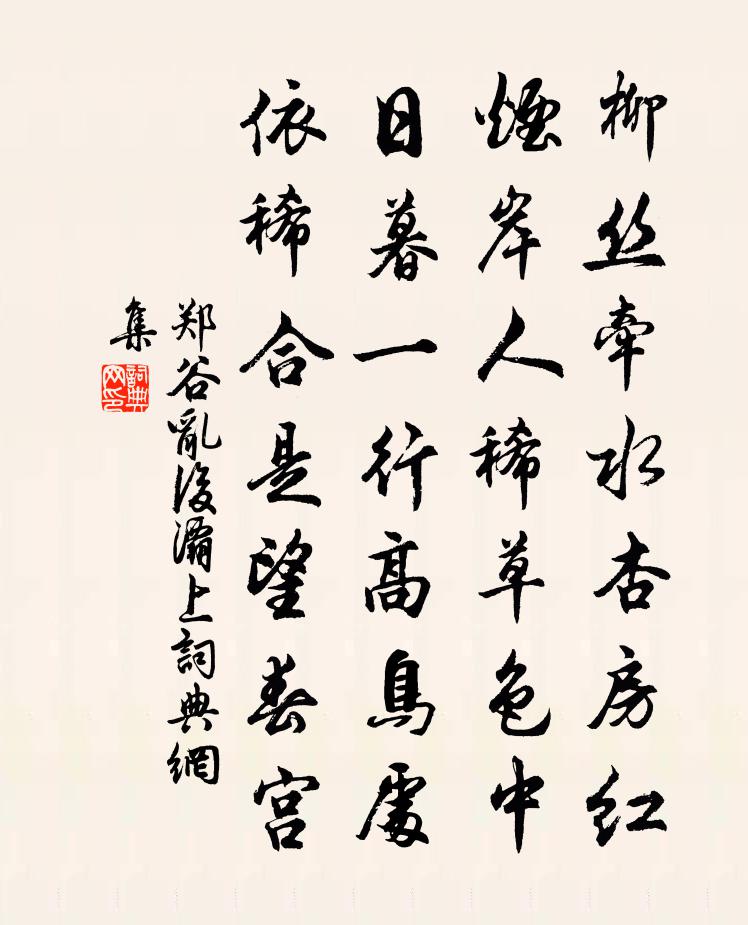 柳丝牵水杏房红
煙岸人稀草色中
日暮一行高鳥處
依稀合是望春宫
郑谷亂後灞上詞典網
集
詞典
网印